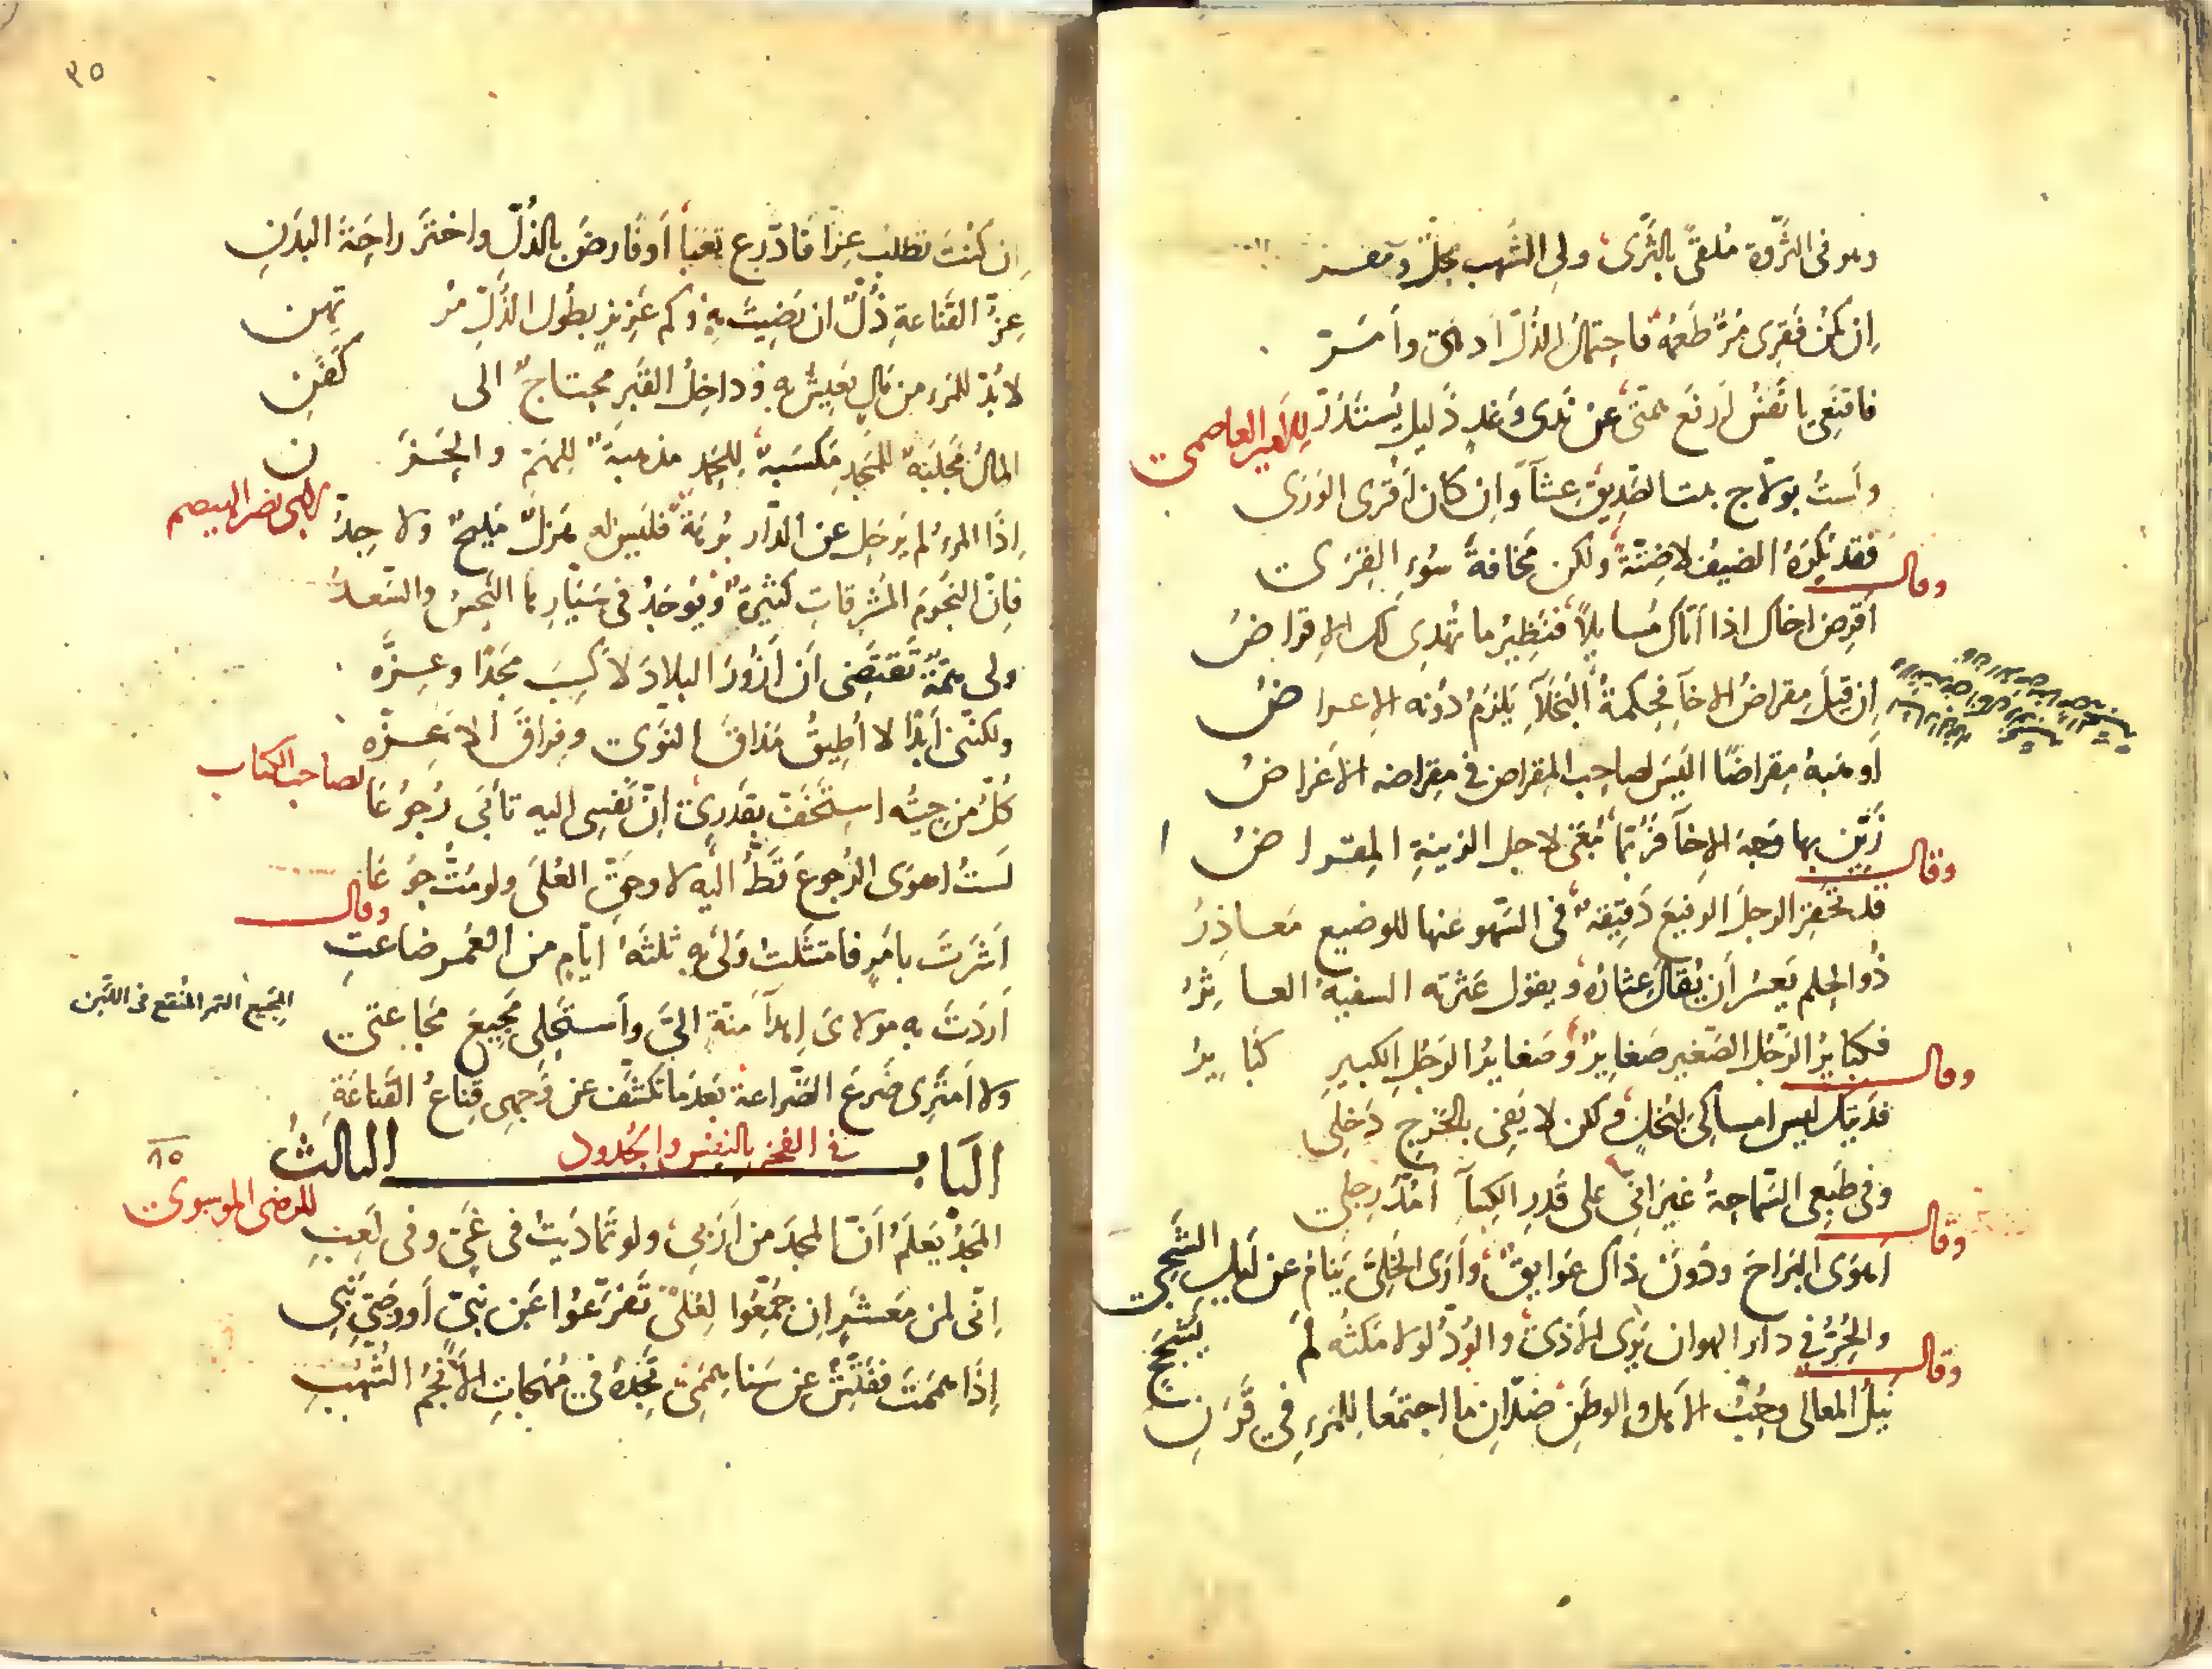 وهو في الثروة ملقى بالثرى ولي الشهب محل ومقر
إن يكن فقري مرّ طعمه فاحتمال الذل أدهى وأمر
فاقنعي يا نفس أرفع همتي عن ندى وغد ذليل يستذر
للامير العاصمي
ولست بولاج بيت الصديق عشآء وإن كان أقرى الورى
فقد يكره الضيف لا ضنة ولكن مخافة سوء القرى
وقال
أقرض اخاك اذا أتاك مسايلا فنظير ما تهدي لك الاقراض
إن قيل مقراض الاخآء فحكمة البخلآء يلزم دونه الاعراض
أو منبه مقراضا اليس لصاحب المقراض في مقراضه الاغراض
زين بها وجه الاخآء فربما يبغى لاجل الزينة المقراض
وقال
قد تحقر الرجل الرفيع دقيقة في السهو عنها للوضيع معاذر
ذو الحلم يعسر أن يقال عثاره ويقول عثرته السفيه العاثر
فكباير الرجل الصغير صغاير وصغاير الرجل الكبير كباير
وقال
فديتك ليس امساكي لبخل ولكن لا يفي بالخرج دخلي
وفي طبعي السماحة غير اني على قدر الكسآء أمد رجلي
وقال
أهوى البراح ودون ذاك عوايق وأرى الخلي ينام عن ليل الشجي
والحر في دار الهوان يرى الأذى والود لولا مكثه لم ينسج
وقال
نيل المعالي وحب الأهل والوطن ضدان ما اجتمعا للمرء في قرن
٣٥
إن كنت تطلب عزا فادرع تعبا أو فارض بالذل واختر راحة البدن
عز القناعة ذل ان رضيت به وكم عزيز بطول الذل مرتهن
لا بد للمرء من مال يعيش به وداخل القبر محتاج الى كفن
المال مجلبة للمجد مكسبة للحمد مذهبة للهم والحزن
لابي نصر الميصم
إذا المرء لم يرحل عن الدار برهة فليس له هزل مليح ولا جد
فإن النجوم المشرقات كثيرة ويوجد في سيارها النحس والسعد
ولي همة تقتضي أن أزور البلاد لأكسب مجدا وعزه
ولكنني أبدا لا أطيق مذاق النوى وفراق الأعزه
لصاحب الكتاب
كل من جيته استخفت بقدري ان نفسي اليه تأبى رجوعا
لست اهوى الرجوع قط اليه لا وحق العلى ولو مت جوعا
وقال
أشرت بامر فامتثلت ولي به ثلثة ايام من العمر ضاعت
أردت به مولاي إهدآء منة الي وأستحلي مجيع مجاعتي
المجيع التمر المنقع في اللبن
ولا أمتري ضرع الضراعة بعدما تكشف عن وجهي قناع القناعة
الباب الثالث في الفخر بالنفس والجدود
٨٥
للرضي الموسوي
المجد يعلم أن المجد من أربي ولو تماديت في غي وفي لعب
إني لمن معشر إن جمعوا لعلى تفرعوا عن نبي أو وصي نبي
إذا هممت ففتش عن سنا هممي تجده في مهجات الأنجم الشهب